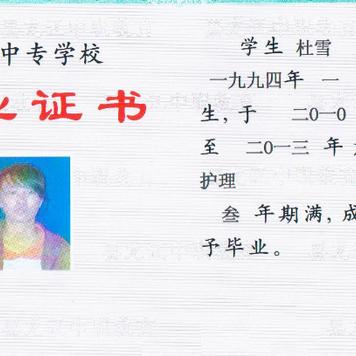 中专学校
业证书
学生 杜雪
一九九四年 一
生，于 二〇一〇
至 二〇一三 年
护理
叁 年期满，成
予毕业。